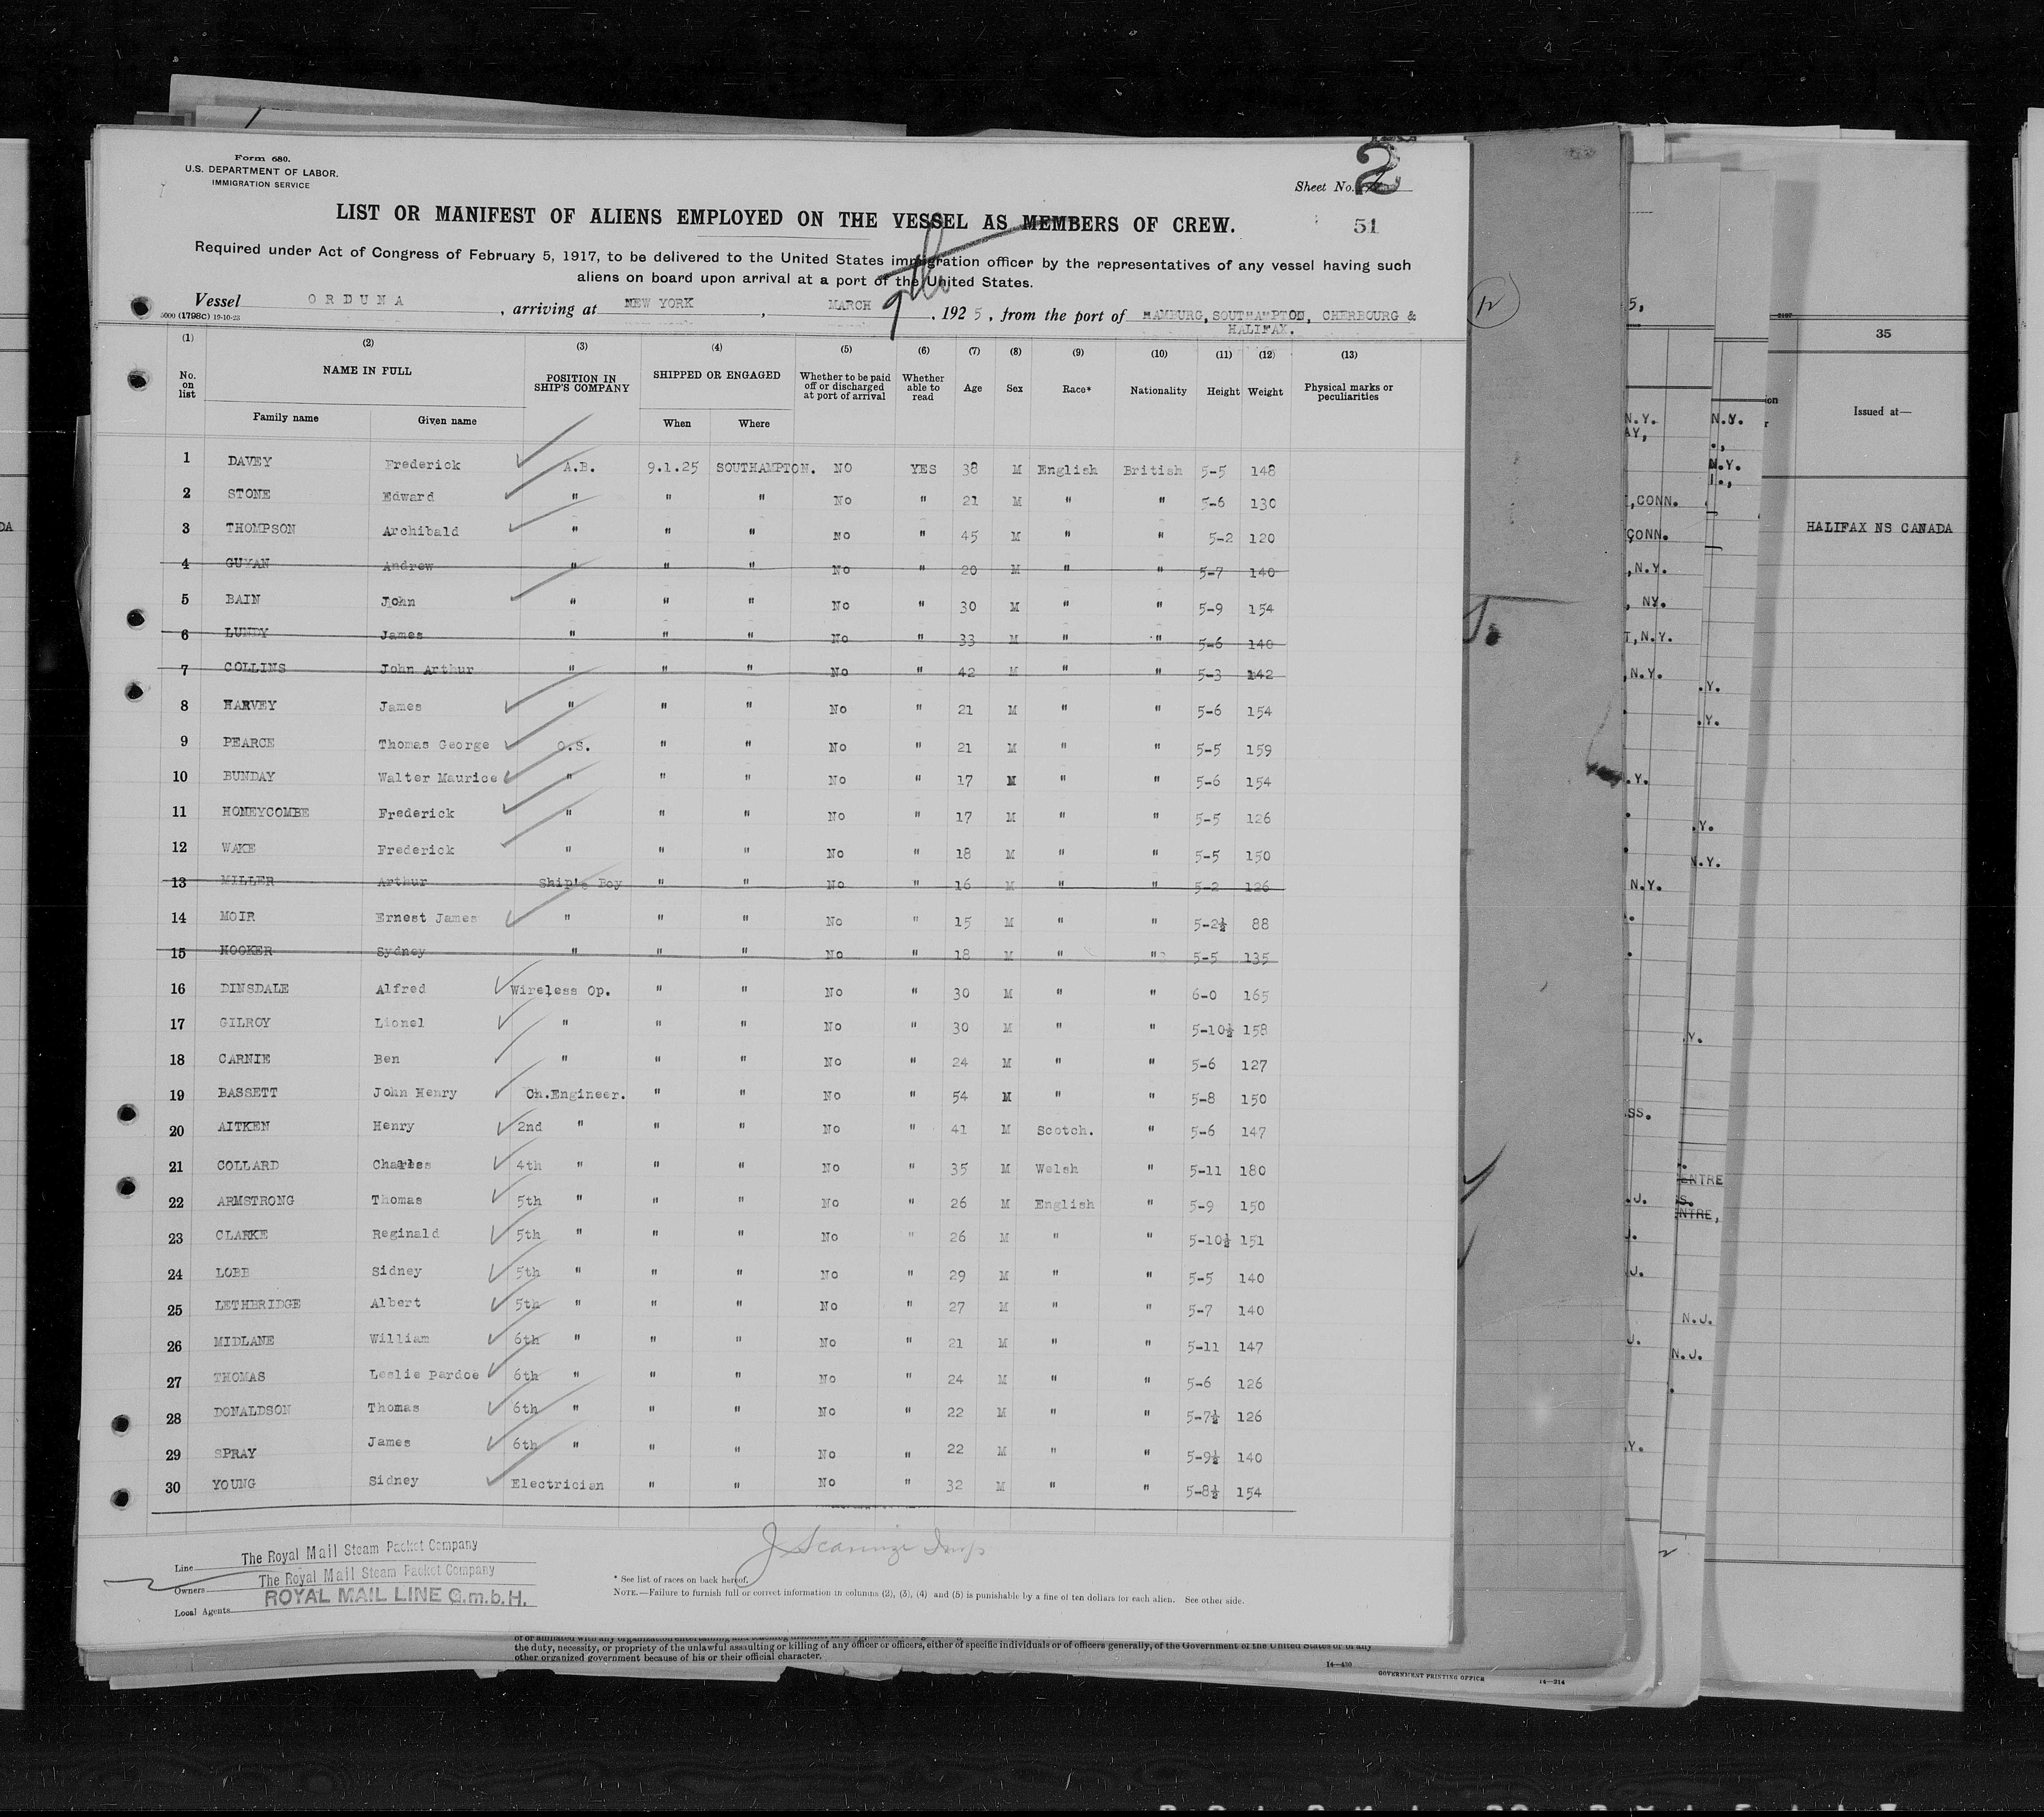 Form 680.
U.S. DEPARTMENT OF LABOR.
IMMIGRATION SERVICE
Sheet No. 2
51
LIST OR MANIFEST OF ALIENS EMPLOYED ON THE VESSEL AS MEMBERS OF CREW.
Required under Act of Congress of February 5, 1917, to be delivered to the United States immigration officer by the representatives of any vessel having such
aliens on board upon arrival at a port of the United States.
Vessel ORDUNA, arriving at NEW YORK, MARCH 9th, 1925, from the port of HAMPURG, SOUTHAMPTON, CHERBOURG &
HALIFAX.
5000 (1798C) 19-10-23
(1) (2) (3) (4) (5) (6) (7) (8) (9) (10) (11) (12) (13)
No. on list NAME IN FULL POSITION IN SHIP'S COMPANY SHIPPED OR ENGAGED Whether to be paid off or discharged at port of arrival Whether able to read Age Sex Race* Nationality Height Weight Physical marks or peculiarities
Family name Given name When Where
1 DAVEY Frederick A.B. 9.1.25 SOUTHAMPTON. NO YES 38 M English British 5-5 148
2 STONE Edward " " " No " 21 M " " 5-6 130
3 THOMPSON Archibald " " " No " 45 M " " 5-2 120
4 GUYAN Andrew " " " No " 20 M " " 5-7 140
5 BAIN John " " " No " 30 M " " 5-9 154
6 LUNDY James " " " No " 33 M " " 5-6 140
7 COLLINS John Arthur " " " No " 42 M " " 5-3 142
8 HARVEY James " " " No " 21 M " " 5-6 154
9 PEARCE Thomas George O.S. " " No " 21 M " " 5-5 159
10 BUNDAY Walter Maurice " " " No " 17 M " " 5-6 154
11 HONEYCOMBE Frederick " " " No " 17 M " " 5-5 126
12 WAKE Frederick " " " No " 18 M " " 5-5 150
13 MILLER Arthur Ship's Boy " " No " 16 M " " 5-2 126
14 MOIR Ernest James " " " No " 15 M " " 5-2½ 88
15 HOOKER Sydney " " " No " 18 M " " 5-5 135
16 DINSDALE Alfred Wireless Op. " " No " 30 M " " 6-0 165
17 GILROY Lionel " " " No " 30 M " " 5-10½ 158
18 CARNIE Ben " " " No " 24 M " " 5-6 127
19 BASSETT John Henry Ch.Engineer. " " No " 54 M " " 5-8 150
20 AITKEN Henry 2nd " " " No " 41 M Scotch. " 5-6 147
21 COLLARD Charles 4th " " " No " 35 M Welsh " 5-11 180
22 ARMSTRONG Thomas 5th " " " No " 26 M English " 5-9 150
23 CLARKE Reginald 5th " " " No " 26 M " " 5-10½ 151
24 LOBB Sidney 5th " " " No " 29 M " " 5-5 140
25 LETHBRIDGE Albert 5th " " " No " 27 M " " 5-7 140
26 MIDLANE William 6th " " " No " 21 M " " 5-11 147
27 THOMAS Leslie Pardoe 6th " " " No " 24 M " " 5-6 126
28 DONALDSON Thomas 6th " " " No " 22 M " " 5-7½ 126
29 SPRAY James 6th " " " No " 22 M " " 5-9½ 140
30 YOUNG Sidney Electrician " " No " 32 M " " 5-8½ 154
Line The Royal Mail Steam Packet Company
Owners The Royal Mail Steam Packet Company
Local Agents ROYAL MAIL LINE G.m.b.H.
* See list of races on back hereof.
NOTE.—Failure to furnish full or correct information in columns (2), (3), (4) and (5) is punishable by a fine of ten dollars for each alien. See other side.
the duty, necessity, or propriety of the unlawful assaulting or killing of any officer or officers, either of specific individuals or of officers generally, of the Government of the United States or of any
other organized government because of his or their official character.
14—430
GOVERNMENT PRINTING OFFICE
14—214
12
35
Issued at—
HALIFAX NS CANADA
5,
N.Y.
AY,
N.Y.
N.Y.
,CONN.
CONN.
,N.Y.
, NY.
T,N.Y.
,N.Y.
.Y.
.Y.
.Y.
.Y.
N.Y.
N.Y.
.Y.
SS.
ENTRE
.J.
S.
ENTRE,
J.
.J.
N.J.
J.
N.J.
.Y.
DA